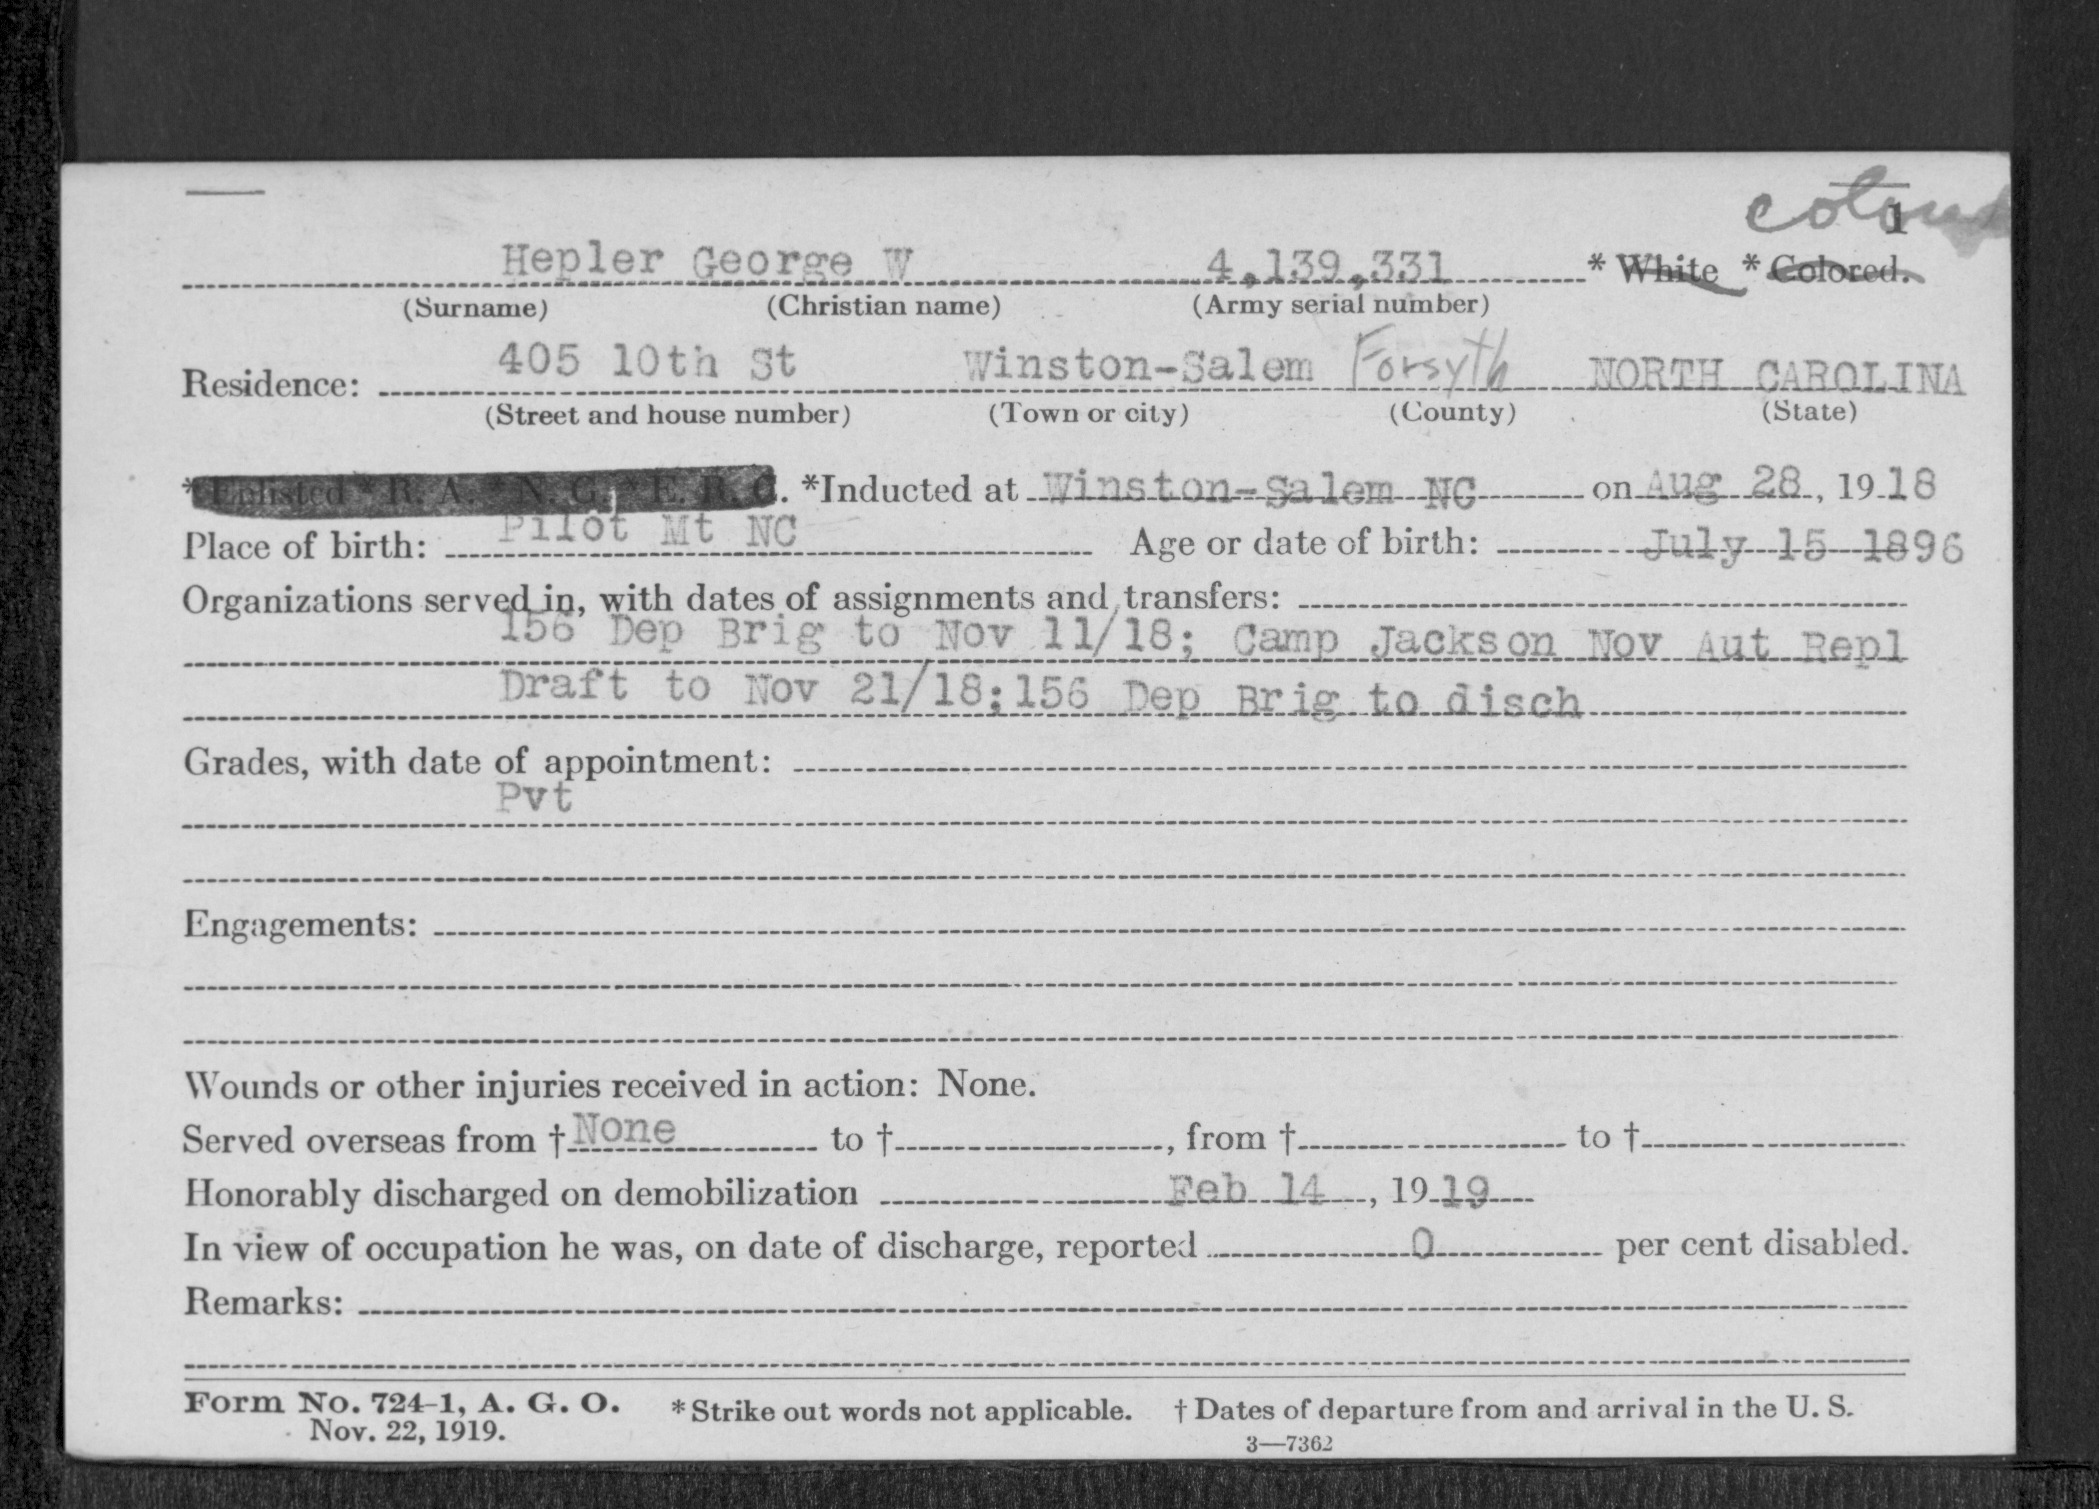 colored
1
Hepler George W 4,139,331 * White * Colored.
(Surname) (Christian name) (Army serial number)
405 10th St Winston-Salem Forsyth NORTH CAROLINA
Residence:
(Street and house number) (Town or city) (County) (State)
*Enlisted * R. A. * N. G. E. R. C. *Inducted at Winston-Salem NC on Aug 28, 1918
Place of birth: Pilot Mt NC Age or date of birth: July 15 1896
Organizations served in, with dates of assignments and transfers:
156 Dep Brig to Nov 11/18; Camp Jackson Nov Aut Repl
Draft to Nov 21/18;156 Dep Brig to disch
Grades, with date of appointment:
Pvt
Engagements:
Wounds or other injuries received in action: None.
Served overseas from † None to † , from † to †
Honorably discharged on demobilization Feb 14, 1919
In view of occupation he was, on date of discharge, reported 0 per cent disabled.
Remarks:
Form No. 724-1, A. G. O. * Strike out words not applicable. † Dates of departure from and arrival in the U. S.
Nov. 22, 1919.
3—7362